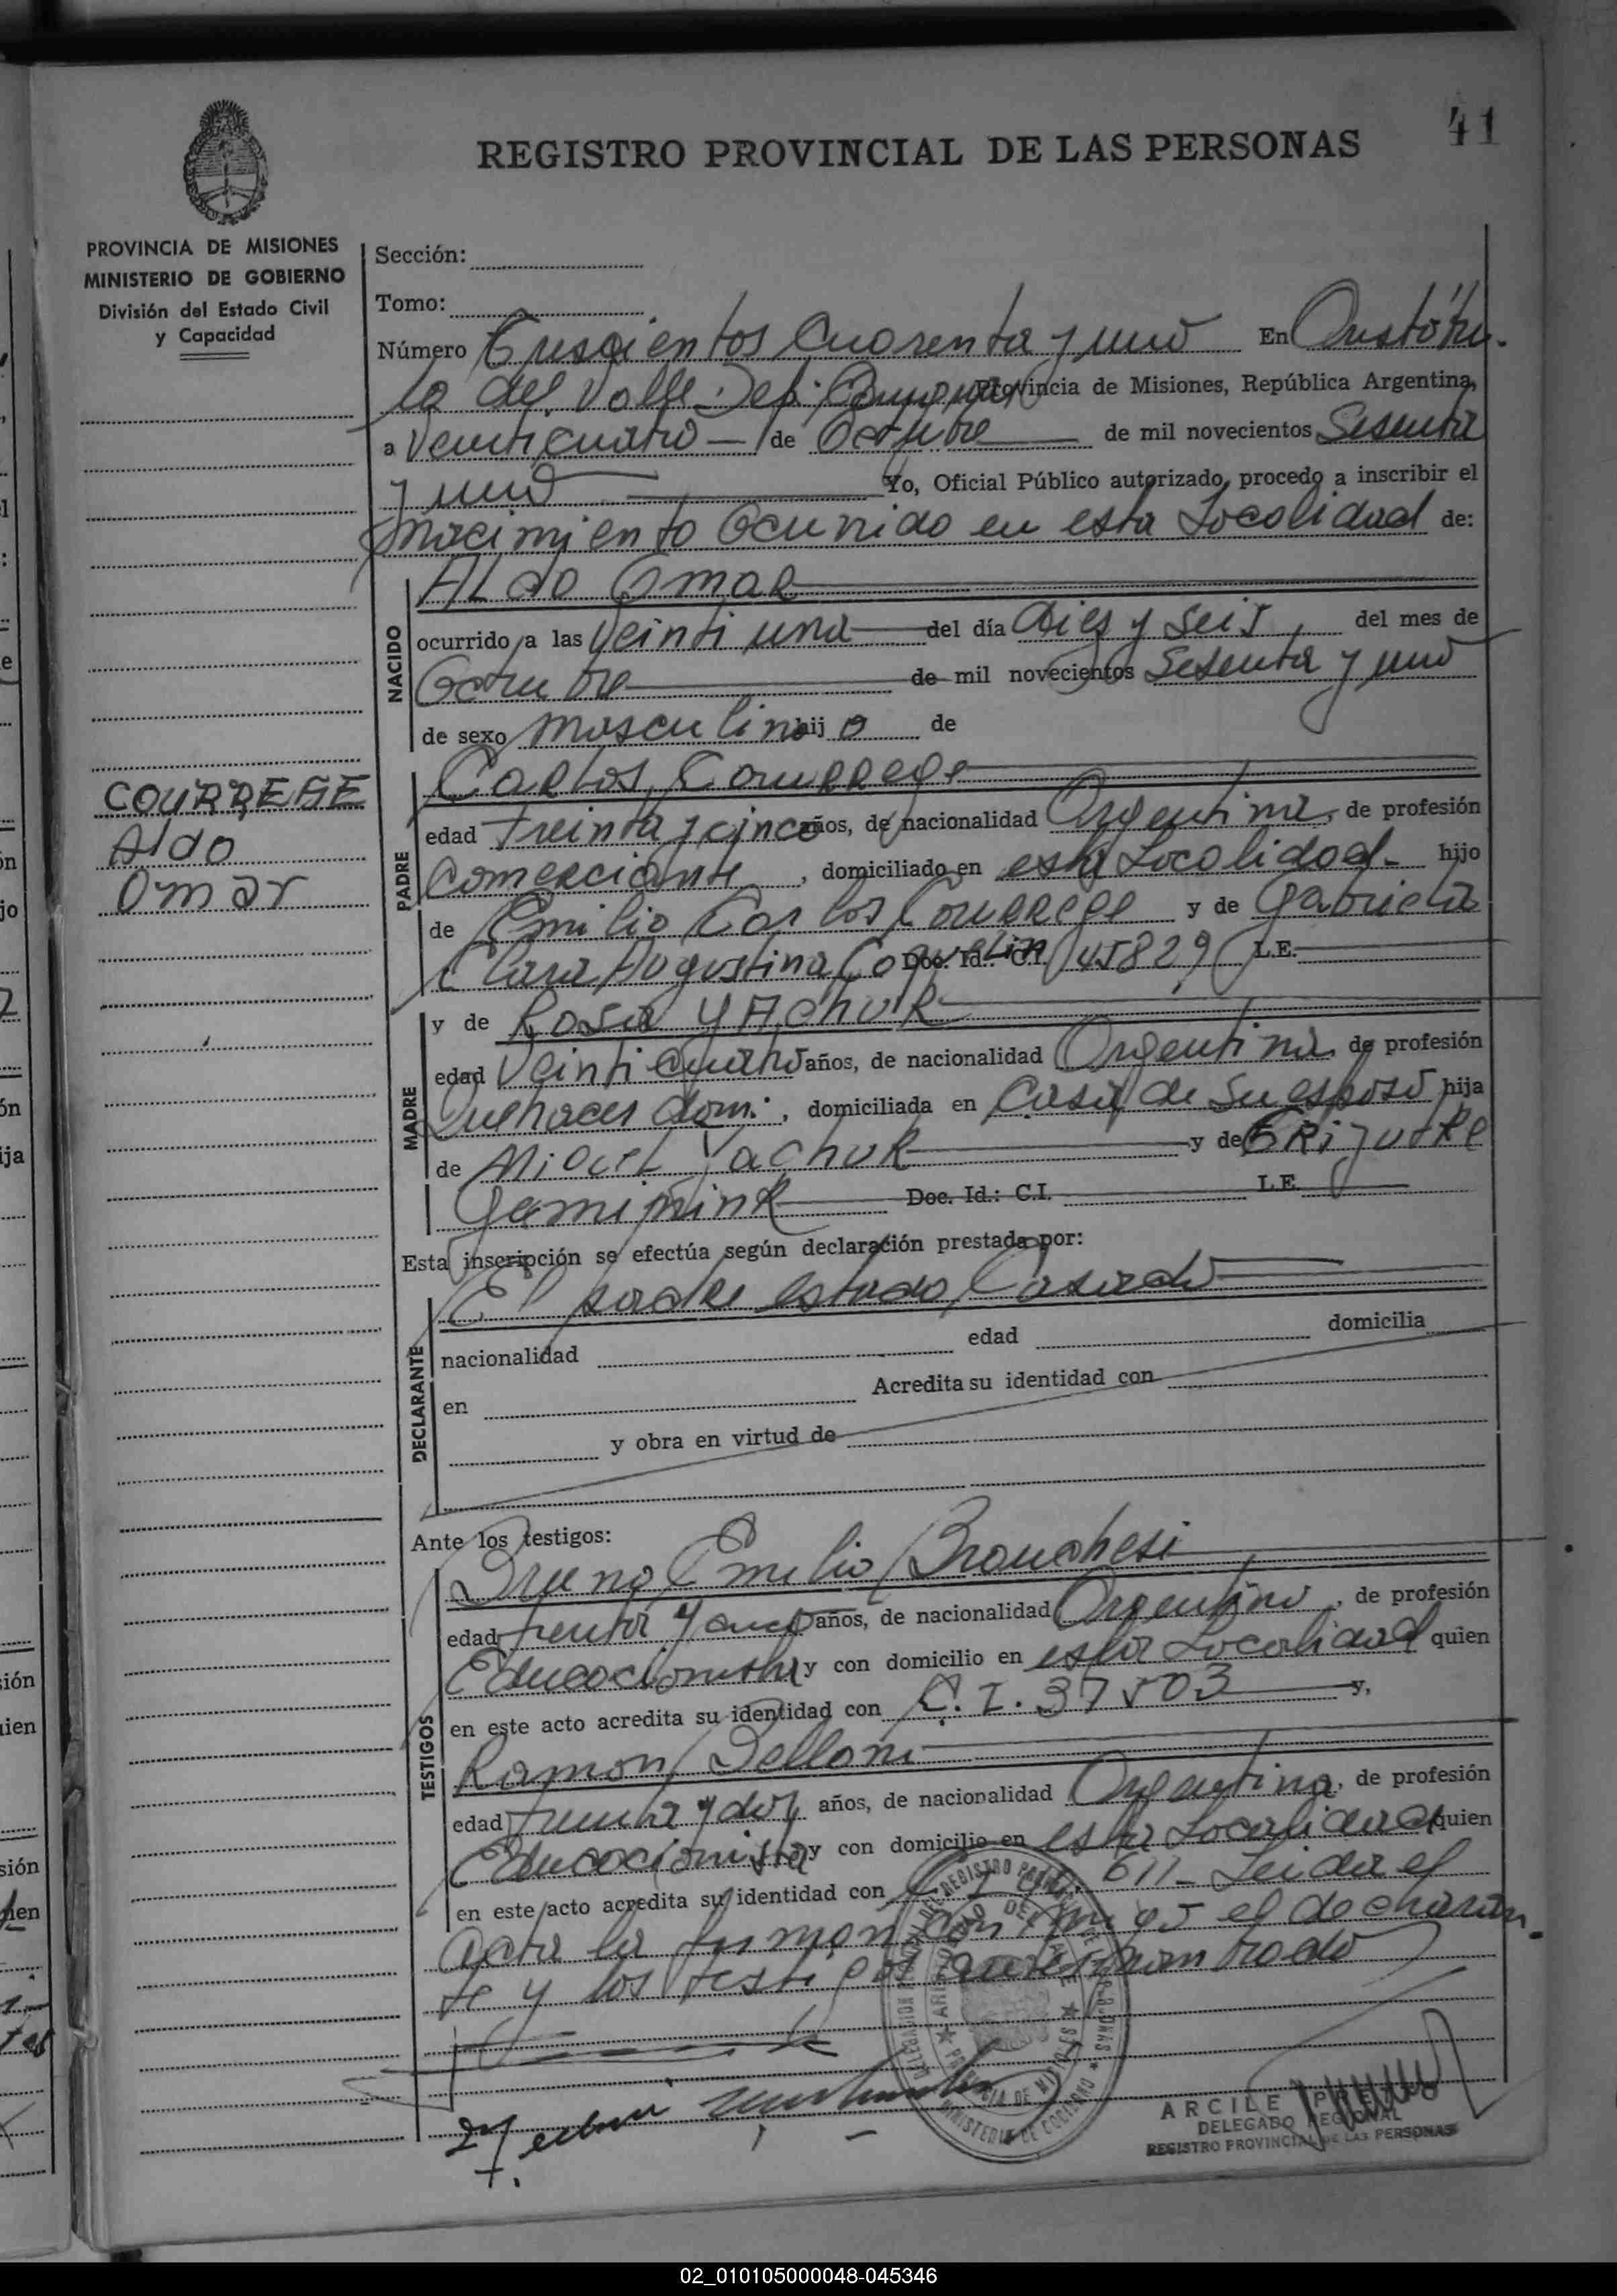 41
REGISTRO PROVINCIAL DE LAS PERSONAS
PROVINCIA DE MISIONES
MINISTERIO DE GOBIERNO
División del Estado Civil
y Capacidad
COURREGE
Aldo
Omar
Sección:
Tomo:
Número Trescientos Cuarenta y uno En Aristóbu-
lo del Valle. Dep. Provincia de Misiones, República Argentina,
a Veinticuatro de Octubre de mil novecientos Sesenta
y uno Yo, Oficial Público autorizado, procedo a inscribir el
nacimiento Ocurrido en esta Localidad de:
NACIDO
ALdo OmaR
ocurrido a las Veintiuna del día Dies y seis del mes de
Octubre de mil novecientos Sesenta y uno
de sexo masculino hijo de
PADRE
Carlos Courrege
edad treinta y cinco años, de nacionalidad Argentina, de profesión
Comerciante, domiciliado en esta Localidad- hijo
de Emilio Carlos Courrege y de Gabriela
Clara Augustina Coquelin Doc. Id.: C.I. 45829 L.E.
MADRE
y de Rosa YAchuk
edad Veinticuatro años, de nacionalidad Argentina de profesión
Quehacer dom:, domiciliada en Casa de su esposo hija
de Miguel Yachuk y de
Doc. Id.: C.I. L.E.
Esta inscripción se efectúa según declaración prestada por:
DECLARANTE
El padre estado Casado
nacionalidad edad domicilia
en Acredita su identidad con
y obra en virtud de
Ante los testigos:
TESTIGOS
Bruno Emilio
edad treinta y cinco años, de nacionalidad Argentino, de profesión
Educacionista y con domicilio en esta Localidad quien
en este acto acredita su identidad con C. I. 37503 y,
Ramon Belloni
edad treinta y dos años, de nacionalidad Argentina, de profesión
Educacionista y con domicilio en esta Localidad quien
en este acto acredita su identidad con 611- Leida el
Acta la firman conmigo el declaran-
te y los testigos
ARCILE
DELEGADO REGIONAL
REGISTRO PROVINCIAL DE LAS PERSONAS
02_010105000048-045346